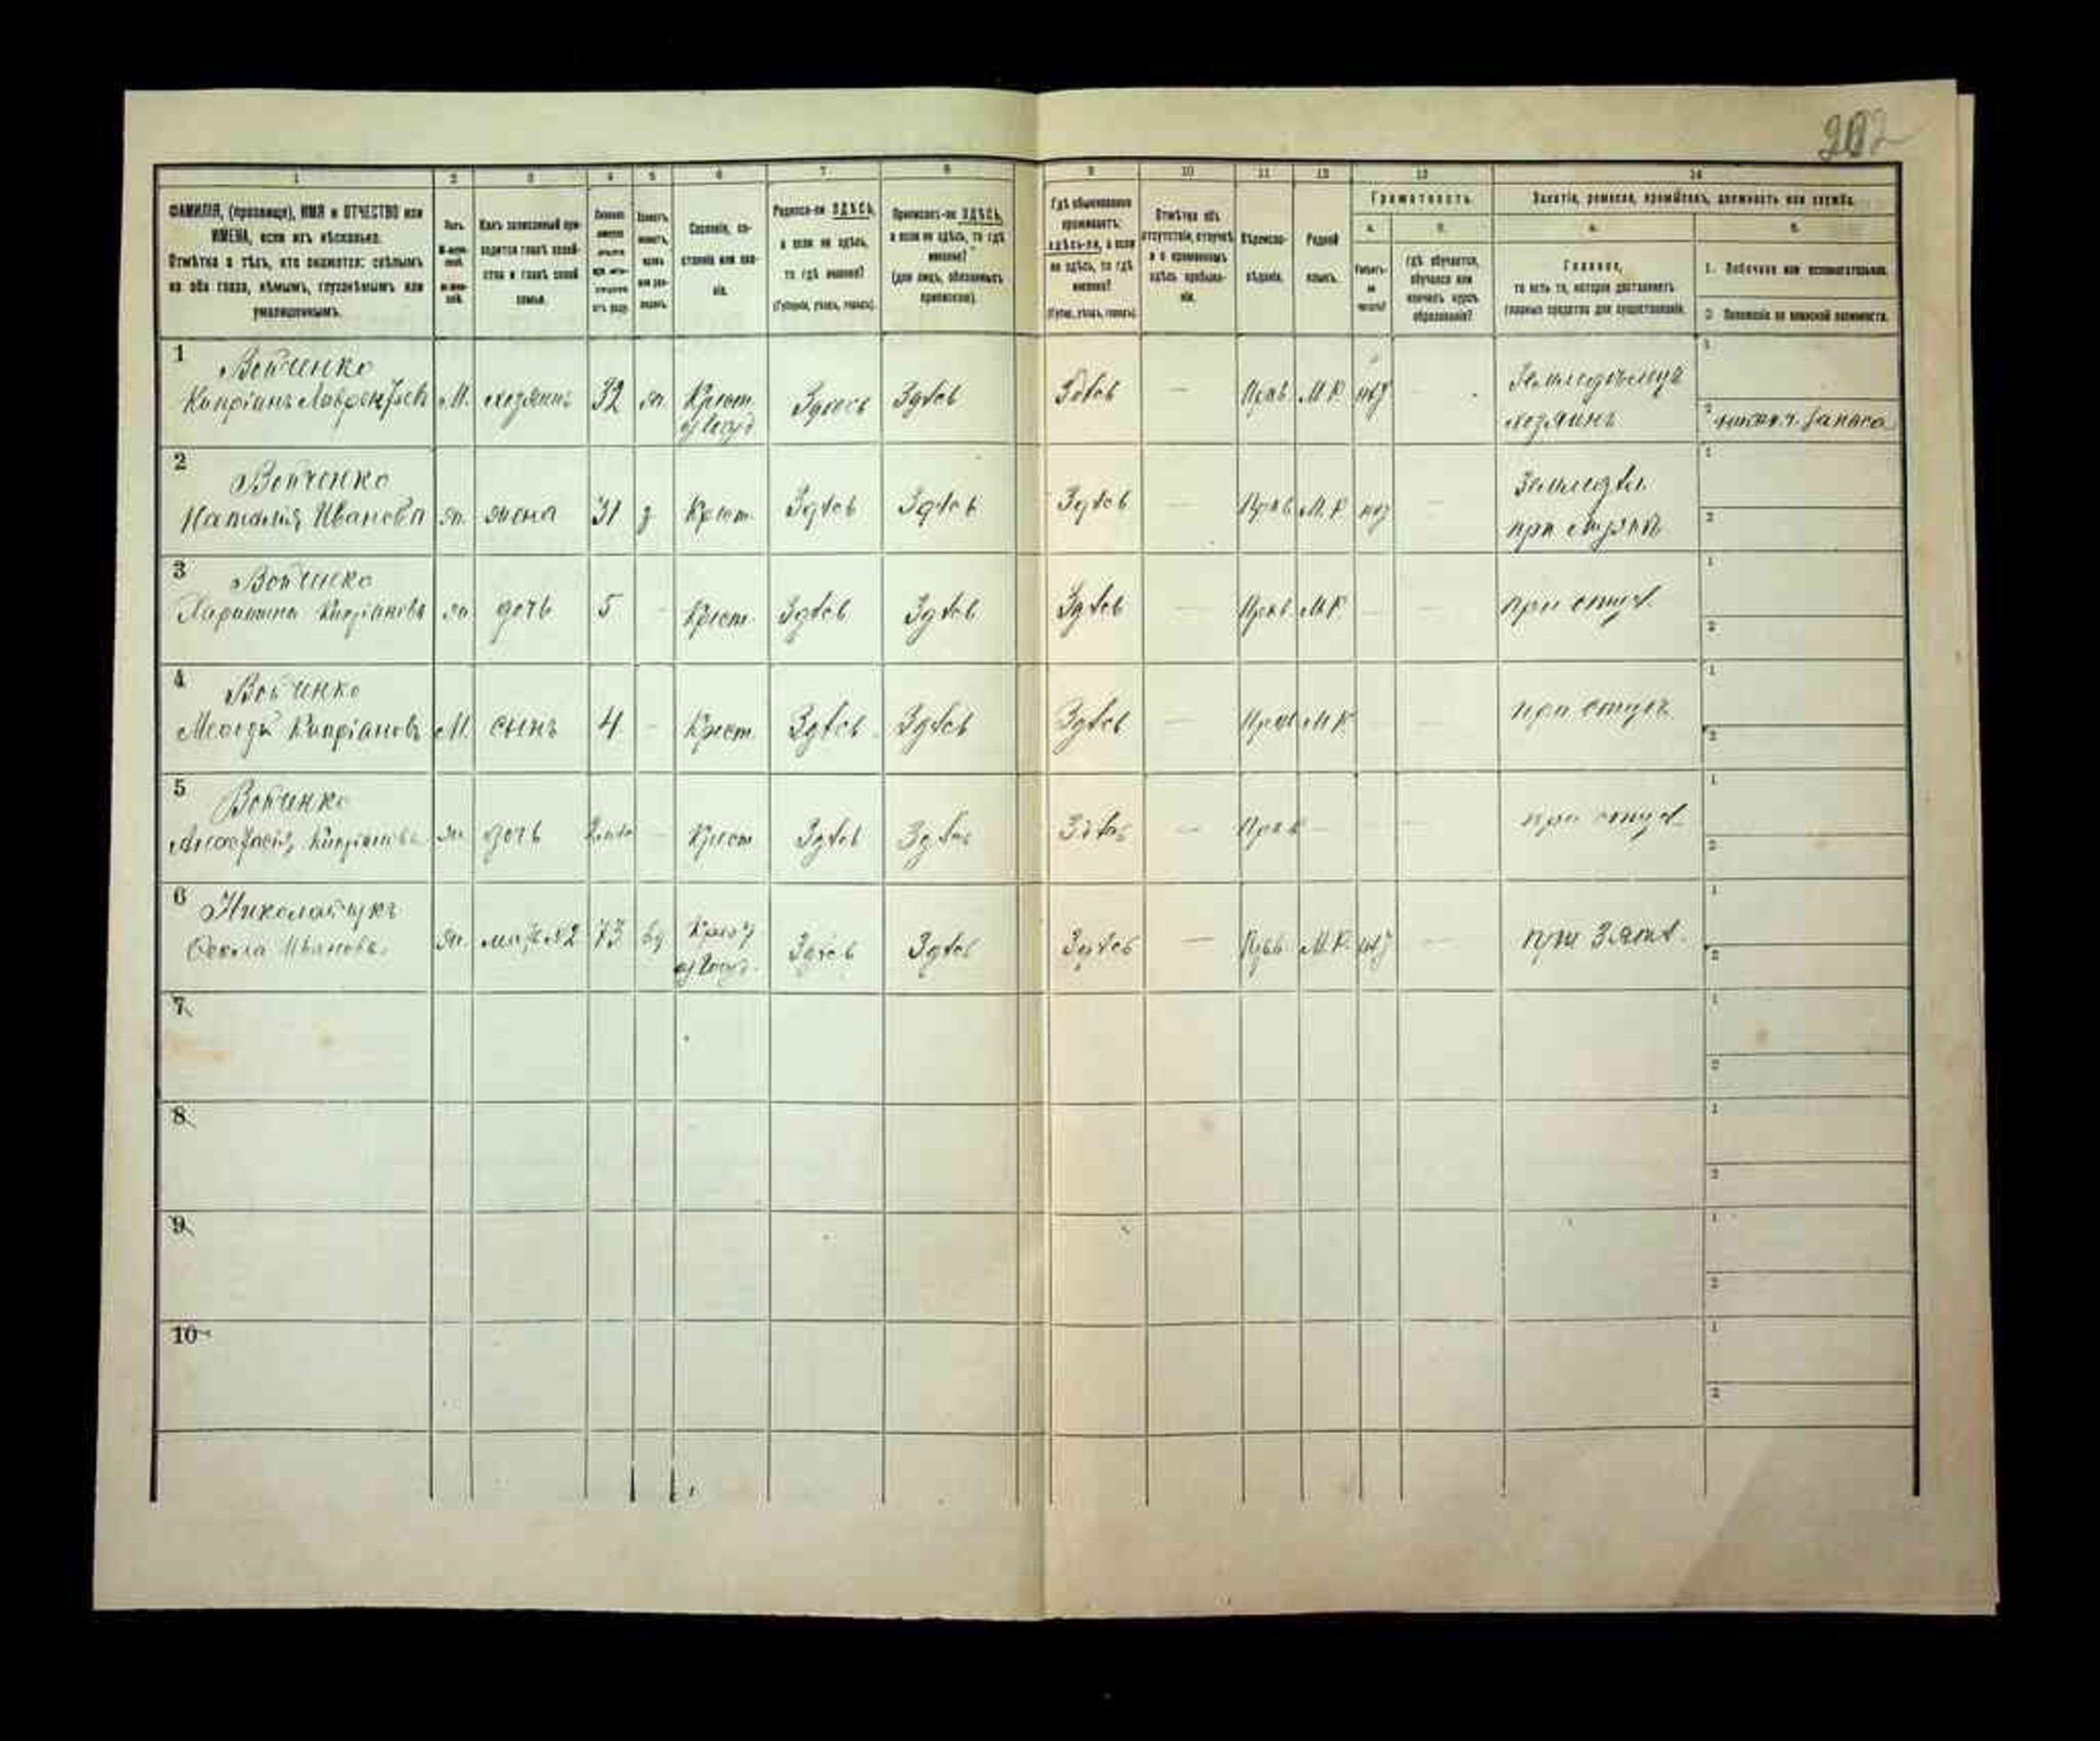 202
1 2 3 4 5 6 7 8 9 10 11 12 13 14
ФАМИЛІЯ, (прозвище), ИМЯ и ОТЧЕСТВО или
ИМЕНА, если ихъ нѣсколько.
Отмѣтка о тѣхъ, кто окажется: слѣпымъ
на оба глаза, нѣмымъ, глухонѣмымъ или
умалишеннымъ.
Полъ.
Какъ записанный при-
ходится главѣ хозяй-
ства и главѣ своей
семьи.
Сословіе, со-
стояніе или зва-
ніе.
Родился-ли ЗДѢСЬ,
а если не здѣсь,
то гдѣ именно?
(Губернія, уѣздъ, городъ).
Приписанъ-ли ЗДѢСЬ,
а если не здѣсь, то гдѣ
именно?
(для лицъ, обязанныхъ
припискою).
Гдѣ обыкновенно
проживаетъ:
здѣсь-ли, а если
не здѣсь, то гдѣ
именно?
(Губер., уѣздъ, городъ).
Отмѣтка объ
отсутствіи, отлучкѣ
и о временномъ
здѣсь пребыва-
ніи.
Вѣроиспо-
вѣданіе.
Родной
языкъ.
Грамотность.
а. б.
Умѣетъ-
ли
читать?
Гдѣ обучается,
обучался или
кончилъ курсъ
образованія?
Занятіе, ремесло, промыселъ, должность или служба.
а. б.
Главное,
то есть то, которое доставляетъ
главныя средства для существованія.
1. Побочное или вспомогательное.
2. Положеніе по воинской повинности.
1 Войченко
Кипріанъ Лаврентьев М. хозяинъ 32 ж. Крест. Здѣсь Здѣсь Здѣсь — Прав М.Р. нѣт Земледѣлецъ
хозяинъ
2 Войченко
Наталія Иванова ж. жена 31 з Крест. Здѣсь Здѣсь Здѣсь — Прав М.Р. нѣт — Земледѣл.
при мужѣ
3 Войченко
Кипріанова ж. дочь 5 - Крест. Здѣсь Здѣсь Здѣсь — Прав М.Р. - — при отцѣ
4 Войченко
Кипріановъ М. сынъ 4 - Крест. Здѣсь Здѣсь Здѣсь — Прав М.Р. при отцѣ
5 Войченко
Анастасія Кипріанова ж. дочь — Крест Здѣсь Здѣсь Здѣсь — Прав при отцѣ
6 Николайчукъ
Ѳекла Иванова ж. мать №2 73 вд Здѣсь Здѣсь Здѣсь — Прав М.Р. нѣт — при зятѣ.
7
8
9
10